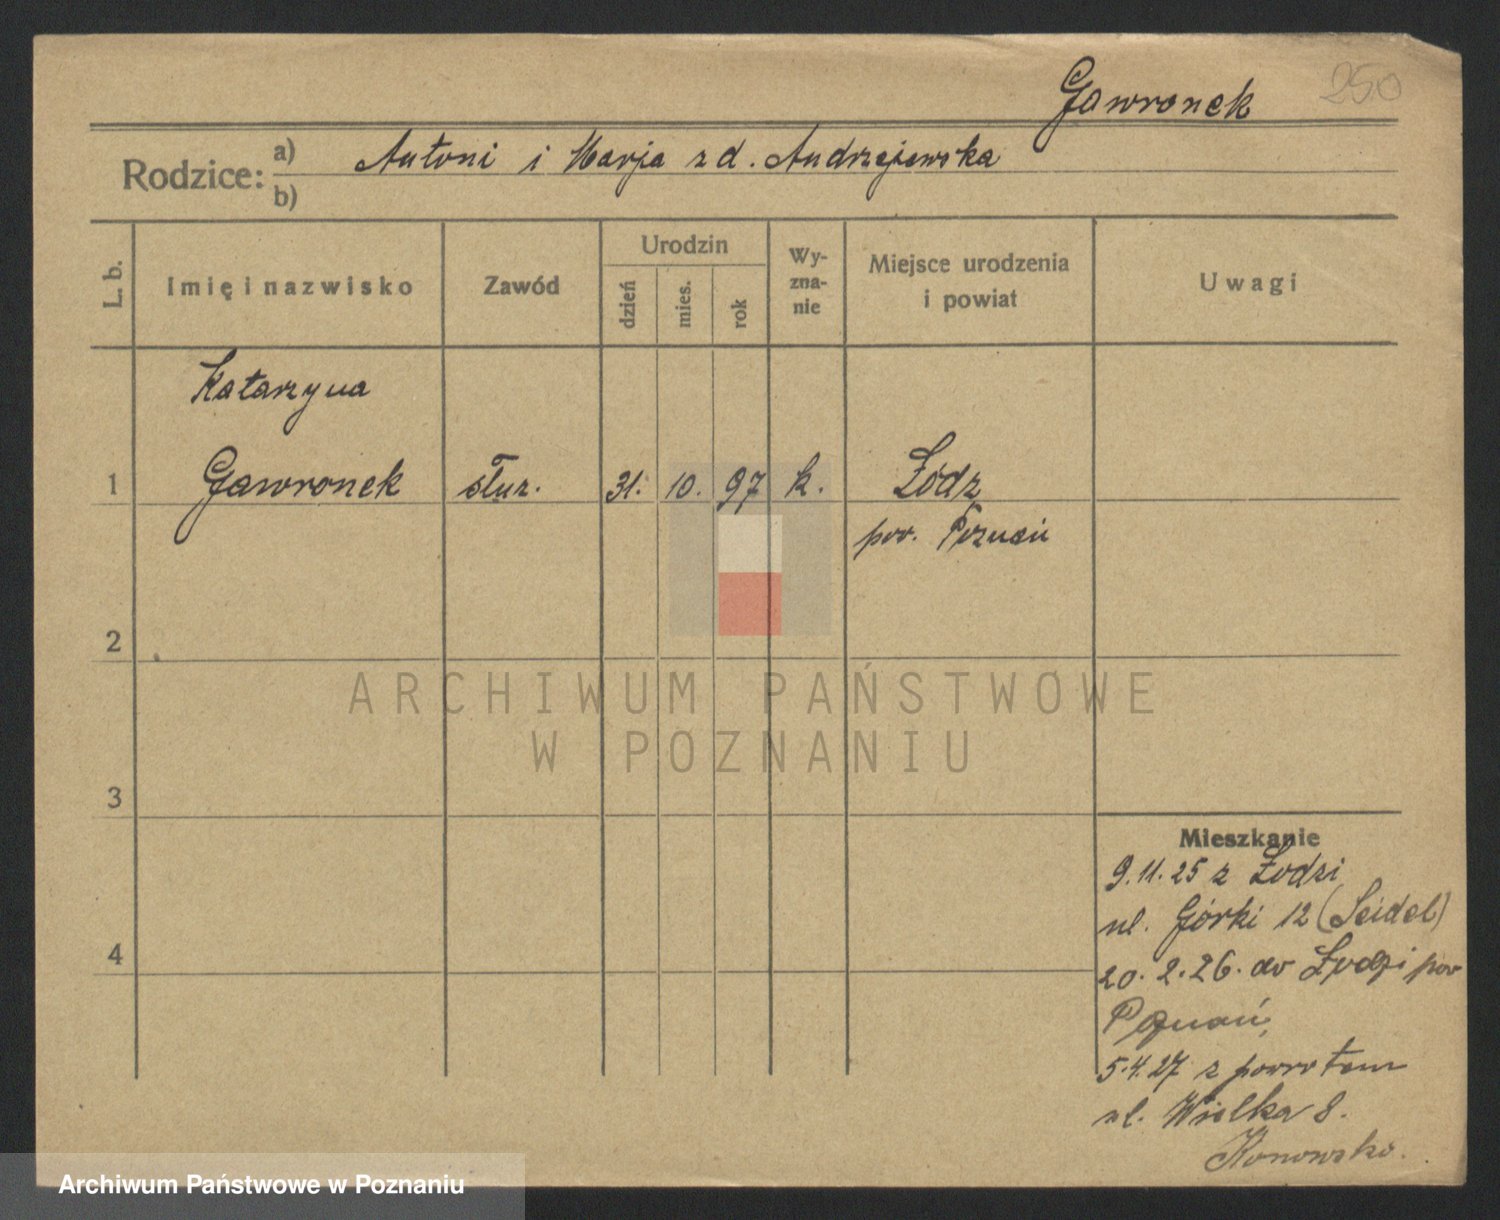 Gawronek 250
Rodzice: a) Antoni i Marja z d. Andrzejewska
b)
L. b. Imię i nazwisko Zawód Urodzin dzień mies. rok Wyznanie Miejsce urodzenia i powiat Uwagi
Katarzyna
1 Gawronek służ. 31. 10. 97 k. Łódz
pow. Poznań
2
ARCHIWUM PAŃSTWOWE
W POZNANIU
3
Mieszkanie
9.11.25 z Łodzi
ul. Górki 12 (Seidel)
4
20.2.26. do Łodzi pow
Poznań,
5.4.27 z powrotem
ul. Wielka 8.
Archiwum Państwowe w Poznaniu